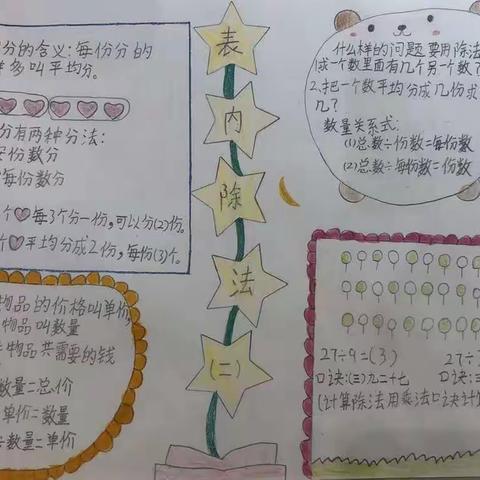 分的含义:每份分的
多叫平均分。
分有两种分法:
份数分
每份数分
个♡每3个分一份,可以分(2)份。
个♡平均分成2份,每份(3)个。
物品的价格叫单价,
物品叫数量
物品共需要的钱
数量=总价
单价=数量
数量=单价
表
内
除
法
(二)
什么样的问题要用除法
1求一个数里面有几个另一个数
2、把一个数平均分成几份求
几?
数量关系式:
(1)总数÷份数=每份数
(2)总数÷每份数=份数
27÷9=(3) 27÷
口诀:(三)九二十七 口诀:
(计算除法用乘法口诀计